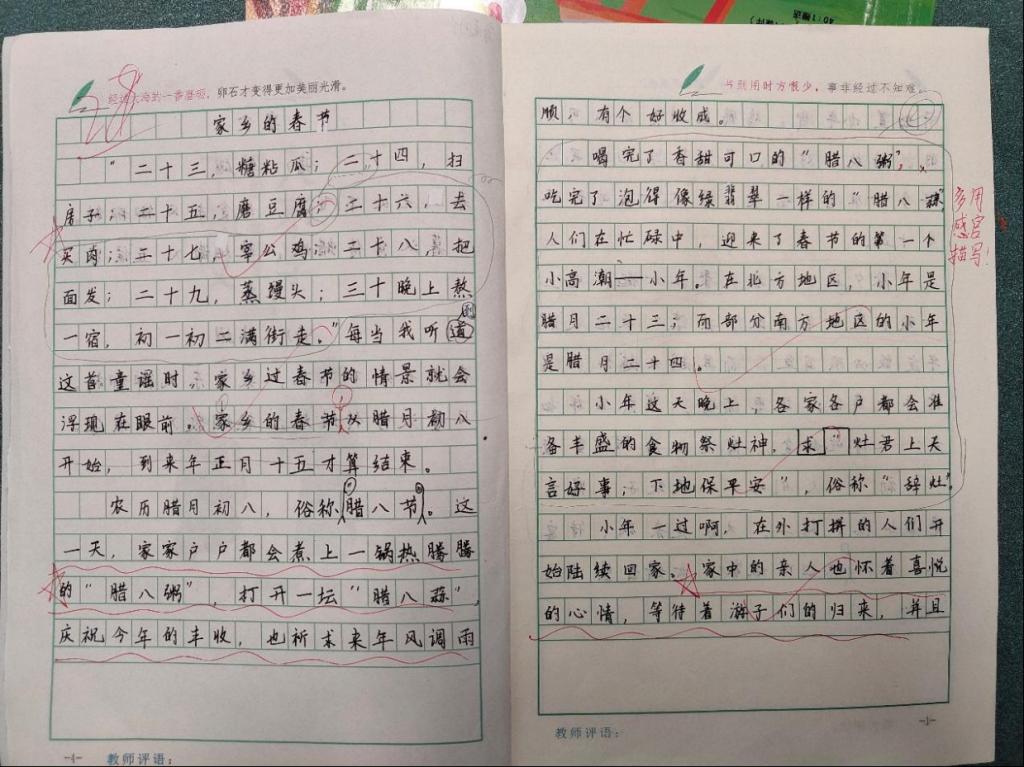 40:1
经过大海的一番磨砺，卵石才变得更加美丽光滑。
28
家乡的春节
“二十三，糖粘瓜；二十四，扫
房子；二十五，磨豆腐；二十六，去
买肉；二十七，宰公鸡；二十八，把
面发；二十九，蒸馒头；三十晚上熬
一宿，初一初二满街走。”每当我听道
到
这首童谣时，家乡过春节的情景就会
浮现在眼前。家乡的春节从腊月初八
开始，到来年正月十五才算结束。
农历腊月初八，俗称“腊八节”。这
一天，家家户户都会煮上一锅热腾腾
的“腊八粥”，打开一坛“腊八蒜”，
庆祝今年的丰收，也祈求来年风调雨
-1- 教师评语：
书到用时方恨少，事非经过不知难。
顺，有个好收成。
喝完了香甜可口的“腊八粥”，
吃完了泡得像绿翡翠一样的“腊八蒜”
人们在忙碌中，迎来了春节的第一个
小高潮——小年。在北方地区，小年是
腊月二十三；而部分南方地区的小年
是腊月二十四。
小年这天晚上，各家各户都会准
备丰盛的食物祭灶神，求“灶君上天
言好事；下地保平安”，俗称“辞灶”。
小年一过啊，在外打拼的人们开
始陆续回家。家中的亲人也怀着喜悦
的心情，等待着游子们的归来，并且
多用
感官
描写！
教师评语： -1-